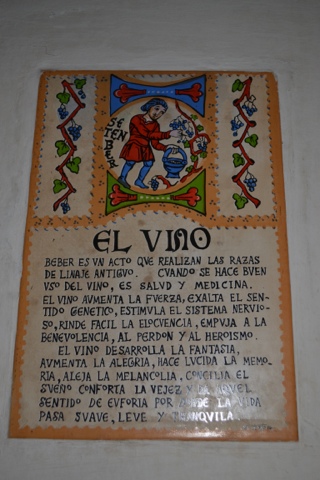 SE
TEN
BER
EL VINO
BEBER ES VN ACTO QVE REALIZAN LAS RAZAS
DE LINAJE ANTIGVO. CVANDO SE HACE BVEN
VSO DEL VINO, ES SALVD Y MEDICINA.
EL VINO AVMENTA LA FVERZA, EXALTA EL SEN-
TIDO GENETICO, ESTIMVLA EL SISTEMA NERVIO-
SO, RINDE FACIL LA ELOCVENCIA, EMPVJA A LA
BENEVOLENCIA, AL PERDON Y AL HEROISMO.
EL VINO DESARROLLA LA FANTASIA,
AVMENTA LA ALEGRIA, HACE LVCIDA LA MEMO-
RIA, ALEJA LA MELANCOLIA, CONCILIA EL
SVEÑO CONFORTA LA VEJEZ Y
SENTIDO DE EVFORIA POR DONDE LA VIDA
PASA SVAVE, LEVE Y TRANQVILA.